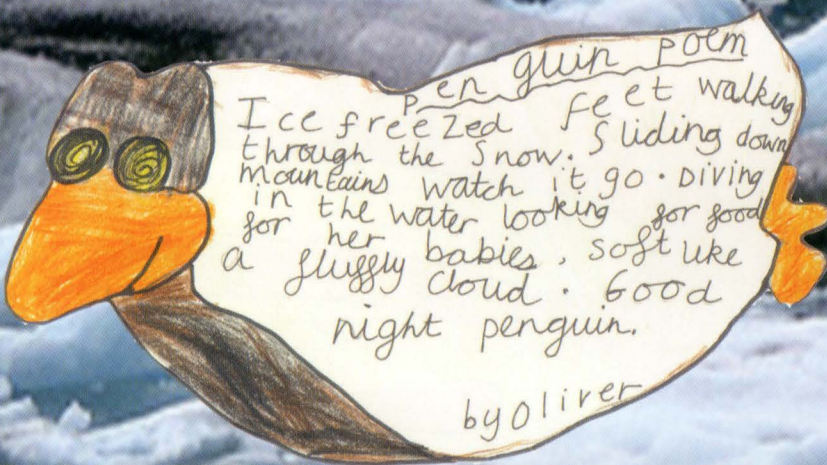 penguin poem
Ice freezed feet walking
through the snow. Sliding down
mountains watch it go. Diving
in the water looking for food
for her babies. Soft like
a fluffly cloud. Good
night penguin.
by Oliver